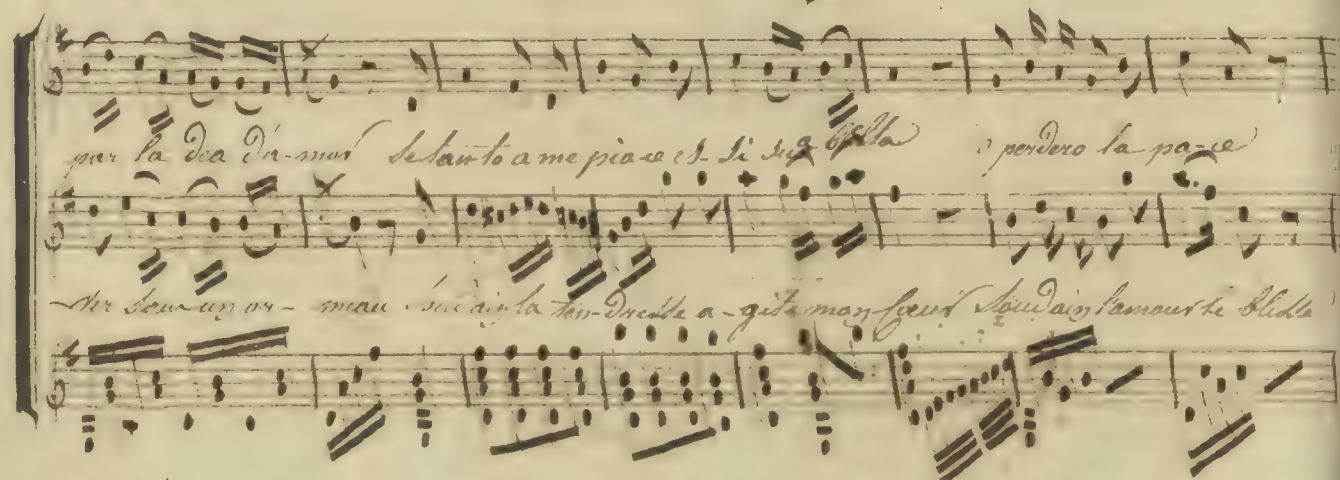 par la dea d'a-mor se tanto a me pia-ce es-si sua bella perdero la pa-ce
sous un or-meau soudain la ten-dresse a-gite mon Cœur Soudain l'amour le blesse